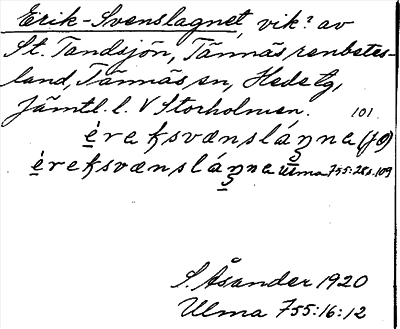 Erik-Svenslagnet, vik? av
St. Tandsjön, Tännäs renbetes-
land, Tännäs sn, Hede tg,
Jämtl. l. V Storholmen. 101
éreksvænsláŋna (fö)
éreksvænsláŋna Ulma 755:28 s. 109
S. Åsander 1920
Ulma 755:16:12